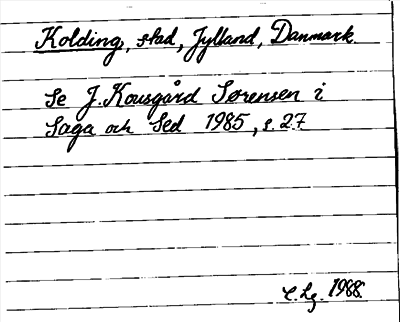 Kolding, stad, Jylland, Danmark.
Se J. Kousgård Sørensen i
Saga och Sed 1985, s. 27
C. Lg. 1988.